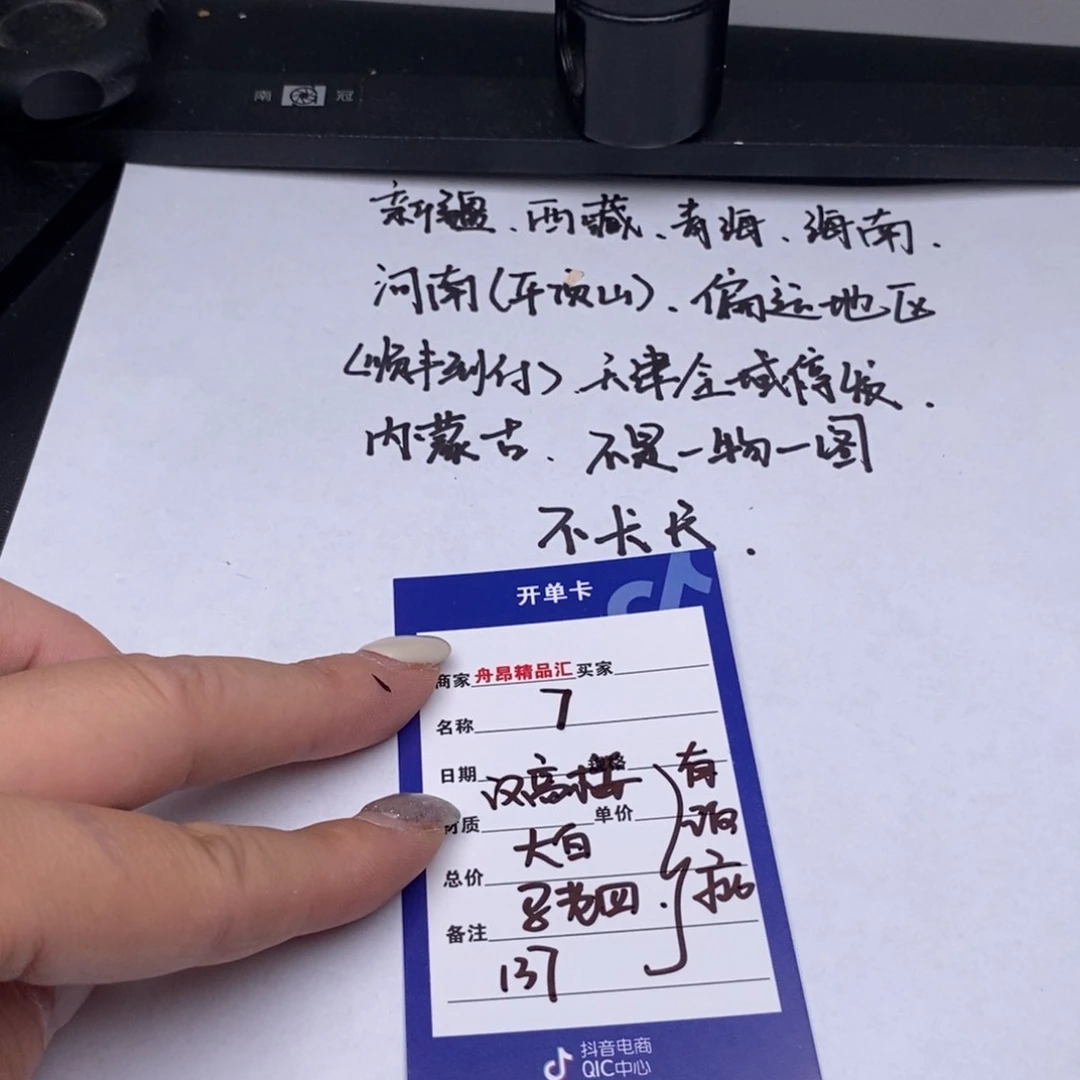 南 冠
新疆、西藏、青海、海南.
河南(平顶山)、偏远地区
(顺丰到付)、天津全域停发.
内蒙古、不是一物一图
不卡尺.
开单卡
商家 舟昂精品汇 买家
名称 7
日期
汉高楼
材质 单价
大白
总价
老四.
备注
137
抖音电商
QIC中心